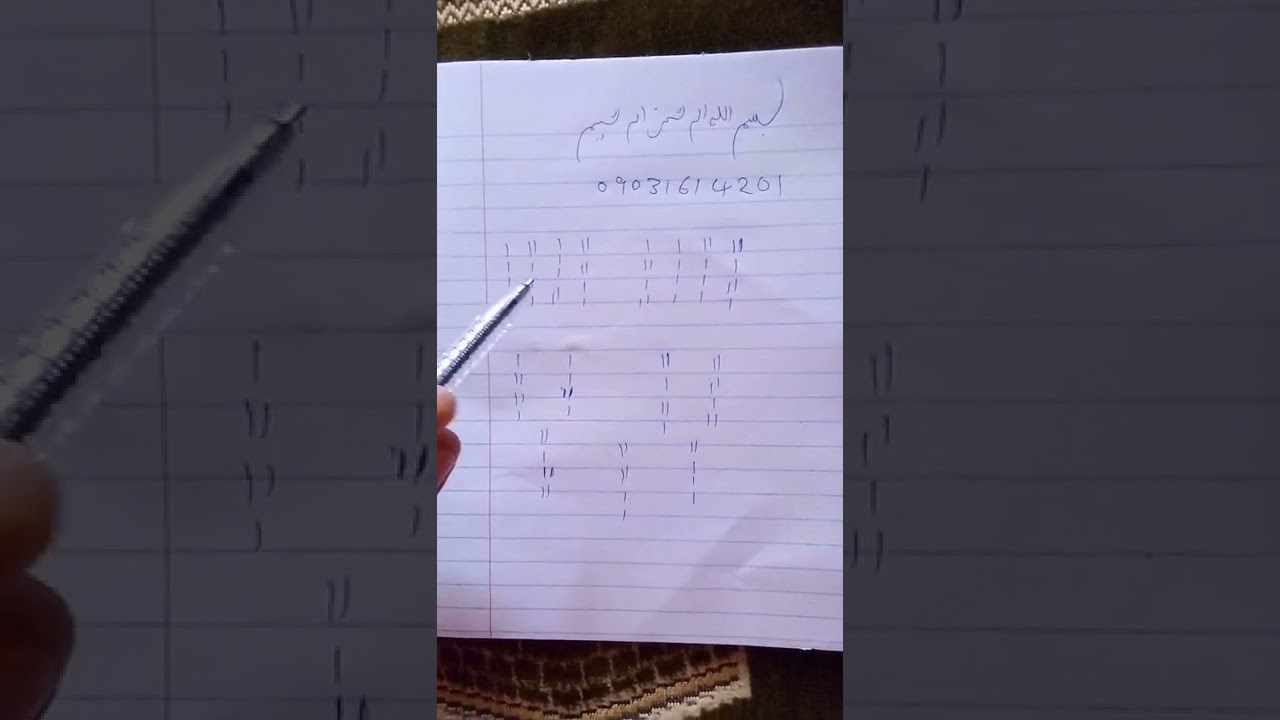 بسم الله الرحمن الرحيم
09031614201